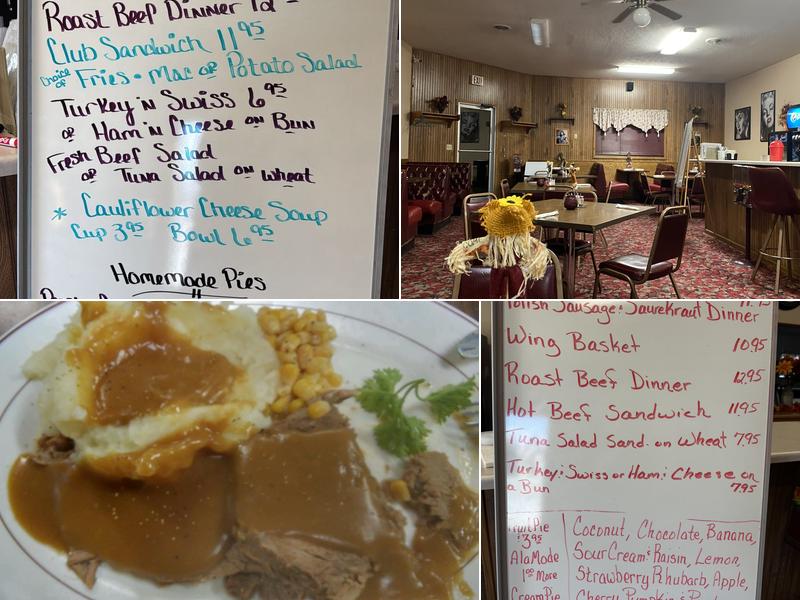 Roast Beef Dinner 12
Club Sandwich 11 95
Choice of Fries • Mac or Potato Salad
Turkey 'N Swiss 6 95
or Ham 'n Cheese on Bun
Fresh Beef Salad
or Tuna Salad on wheat
* Cauliflower Cheese Soup
Cup 3 95 Bowl 6 95
Homemade Pies
EXIT
Polish Sausage & Saurekraut Dinner 11.95
Wing Basket 10.95
Roast Beef Dinner 12.95
Hot Beef Sandwich 11.95
Tuna Salad Sand. on Wheat 7.95
Turkey & Swiss or Ham & Cheese on
a Bun 7.95
Fruit Pie
$3.95
AlaMode
1.00 More
Cream Pie
Coconut, Chocolate, Banana,
Sour Cream & Raisin, Lemon,
Strawberry Rhubarb, Apple,
Cherry Pumpkin &